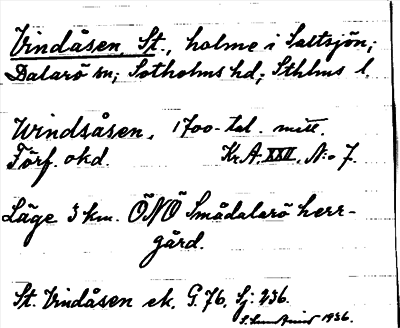 Vindåsen, St., holme i Saltsjön;
Dalarö sn; Sotholms hd; Sthlms l.
Windsåsen. 1700-tal. mitt.
Förf. okd. Kr.A. XXII. N:o 7.
Läge 3 km. ÖNÖ Smådalarö herr-
gård.
St. Vindåsen ek. G.76. Sj. 236.
1936.